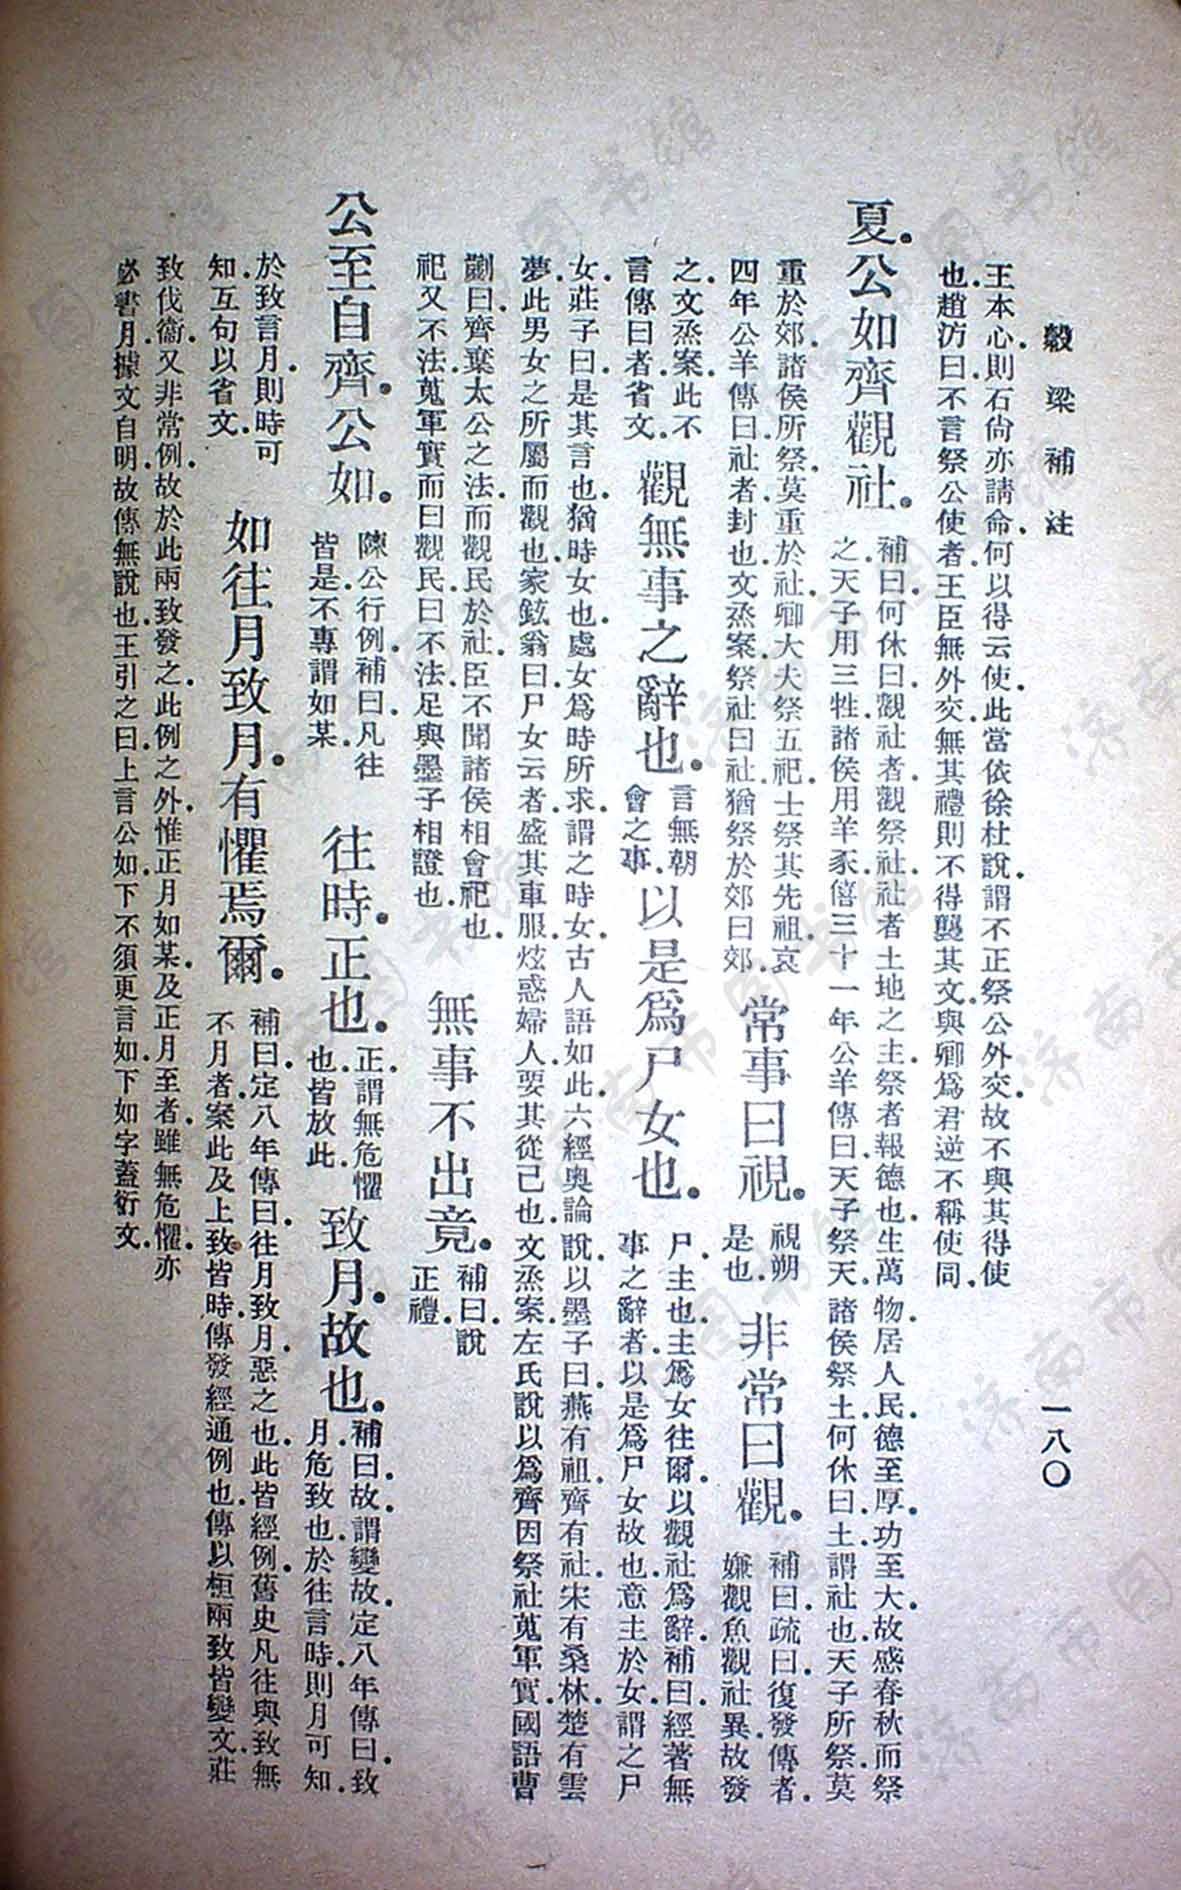 穀梁補注
一八〇
王本心.則石尙亦請命.何以得云使.此當依徐杜說.謂不正祭公外交.故不與其得使
也.趙汸曰.不言祭公使者.王臣無外交.無其禮則不得襲其文.與卿爲君逆不稱使同.
夏.公如齊觀社.
補曰.何休曰.觀社者.觀祭社.社者土地之主.祭者報德也.生萬物.居人民.德至厚.功至大.故感春秋而祭
之.天子用三牲.諸侯用羊豕.僖三十一年公羊傳曰.天子祭天.諸侯祭土.何休曰.土謂社也.天子所祭.莫
重於郊.諸侯所祭.莫重於社.卿大夫祭五祀.士祭其先祖.哀
四年公羊傳曰.社者封也.文烝案.祭社曰社.猶祭於郊曰郊.
常事曰視.
視朔
是也.
非常曰觀.
補曰.疏曰.復發傳者.
嫌觀魚觀社異.故發
之.文烝案.此不
言傳曰者.省文.
觀無事之辭也.
言無朝
會之事.
以是爲尸女也.
尸.主也.主爲女往爾.以觀社爲辭.補曰.經著無
事之辭者.以是爲尸女故也.意主於女.謂之尸
女.莊子曰.是其言也.猶時女也.處女爲時所求.謂之時女.古人語如此.六經奧論說.以墨子曰.燕有祖.齊有社.宋有桑林.楚有雲
夢.此男女之所屬而觀也.家鉉翁曰.尸女云者.盛其車服.炫惑婦人.要其從己也.文烝案.左氏說以爲齊因祭社蒐軍實.國語曹
劌曰.齊棄太公之法.而觀民於社.臣不聞諸侯相會祀也.
祀又不法.蒐軍實而曰觀民.曰不法.足與墨子相證也.
無事不出竟.
補曰.說
正禮.
公至自齊.公如.
陳公行例.補曰.凡往
皆是.不專謂如某.
往時.正也.
正.謂無危懼
也.皆放此.
致月.故也.
補曰.故.謂變故.定八年傳曰.致
月.危致也.於往言時.則月可知.
於致言月.則時可
知.互句以省文.
如往月致月.有懼焉爾.
補曰.定八年傳曰.往月致月.惡之也.此皆經例.舊史凡往與致無
不月者.案此及上致皆時.傳發經通例也.傳以桓兩致皆變文.莊
致伐衞.又非常例.故於此兩致發之.此例之外.惟正月如某.及正月至者.雖無危懼.亦
必書月.據文自明.故傳無說也.王引之曰.上言公如.下不須更言如.下如字蓋衍文.